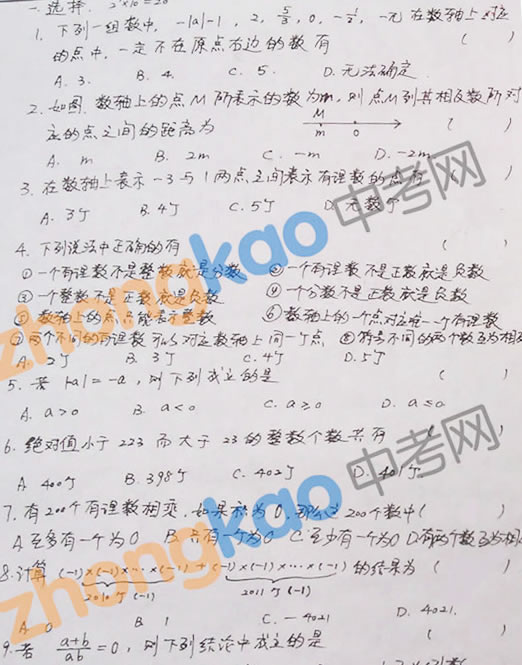 一. 选择. 2'×10=20
1. 下列一组数中, -|a|-1, 2, 5/3, 0, -1/2, -π 在数轴上对应
的点中,一定不在原点右边的数有 ( )
A. 3. B. 4. C. 5. D. 无法确定.
2. 如图.数轴上的点M所表示的数为m,则点M到其相反数所对
应的点之间的距离为 M m 0 ( )
A. m B. 2m C. -m D. -2m
3. 在数轴上表示-3与1两点之间表示有理数的点有 ( )
A. 3个 B. 4个 C. 5个 D. 无数个
4. 下列说法中正确的有 ( )
①一个有理数不是整数就是分数 ②一个有理数不是正数就是负数
③一个整数不是正数就是负数 ④一个分数不是正数就是负数
⑤数轴上的点只能表示整数 ⑥数轴上的一个点对应唯一一个有理数
⑦两个不同的有理数可以对应数轴上同一个点 ⑧符号不同的两个数互为相反
A. 2个 B. 3个 C. 4个 D. 5个
5. 若 |a|=-a, 则下列成立的是 ( )
A. a>0 B. a<0 C. a≥0 D. a≤0
6. 绝对值小于223而大于23的整数个数共有 ( )
A 400个 B. 398个 C. 402个 D. 401个
7. 有200个有理数相乘,如果积为0,那么这200个数中( )
A 至多有一个为0 B. 只有一个为0 C 至少有一个为0 D.有两个数互为相反
8. 计算 (-1)×(-1)×…×(-1) + (-1)×(-1)×…×(-1) 的结果为 ( )
2010个(-1) 2011个(-1)
A. 0 B. 1 C. -4021 D. 4021.
9. 若 (a+b)/ab=0, 则下列结论中成立的是 ( )
zhongkao中考网
zhongkao中考网